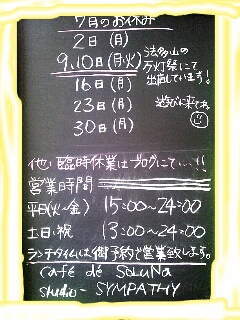 7月のお休み
2日(月)
9,10日(月)(火)
法多山の
万灯祭にて
出店しています!
16日(月)
遊びに来てネ
23日(月)
30日(月)
他、臨時休業はブログにて...!!
営業時間
平日(火〜金) 15:00〜24:00
土日祝 13:00〜24:00
ランチタイムは御予約で営業致します。
Café dé SoLuNa
studio- SYMPATHY